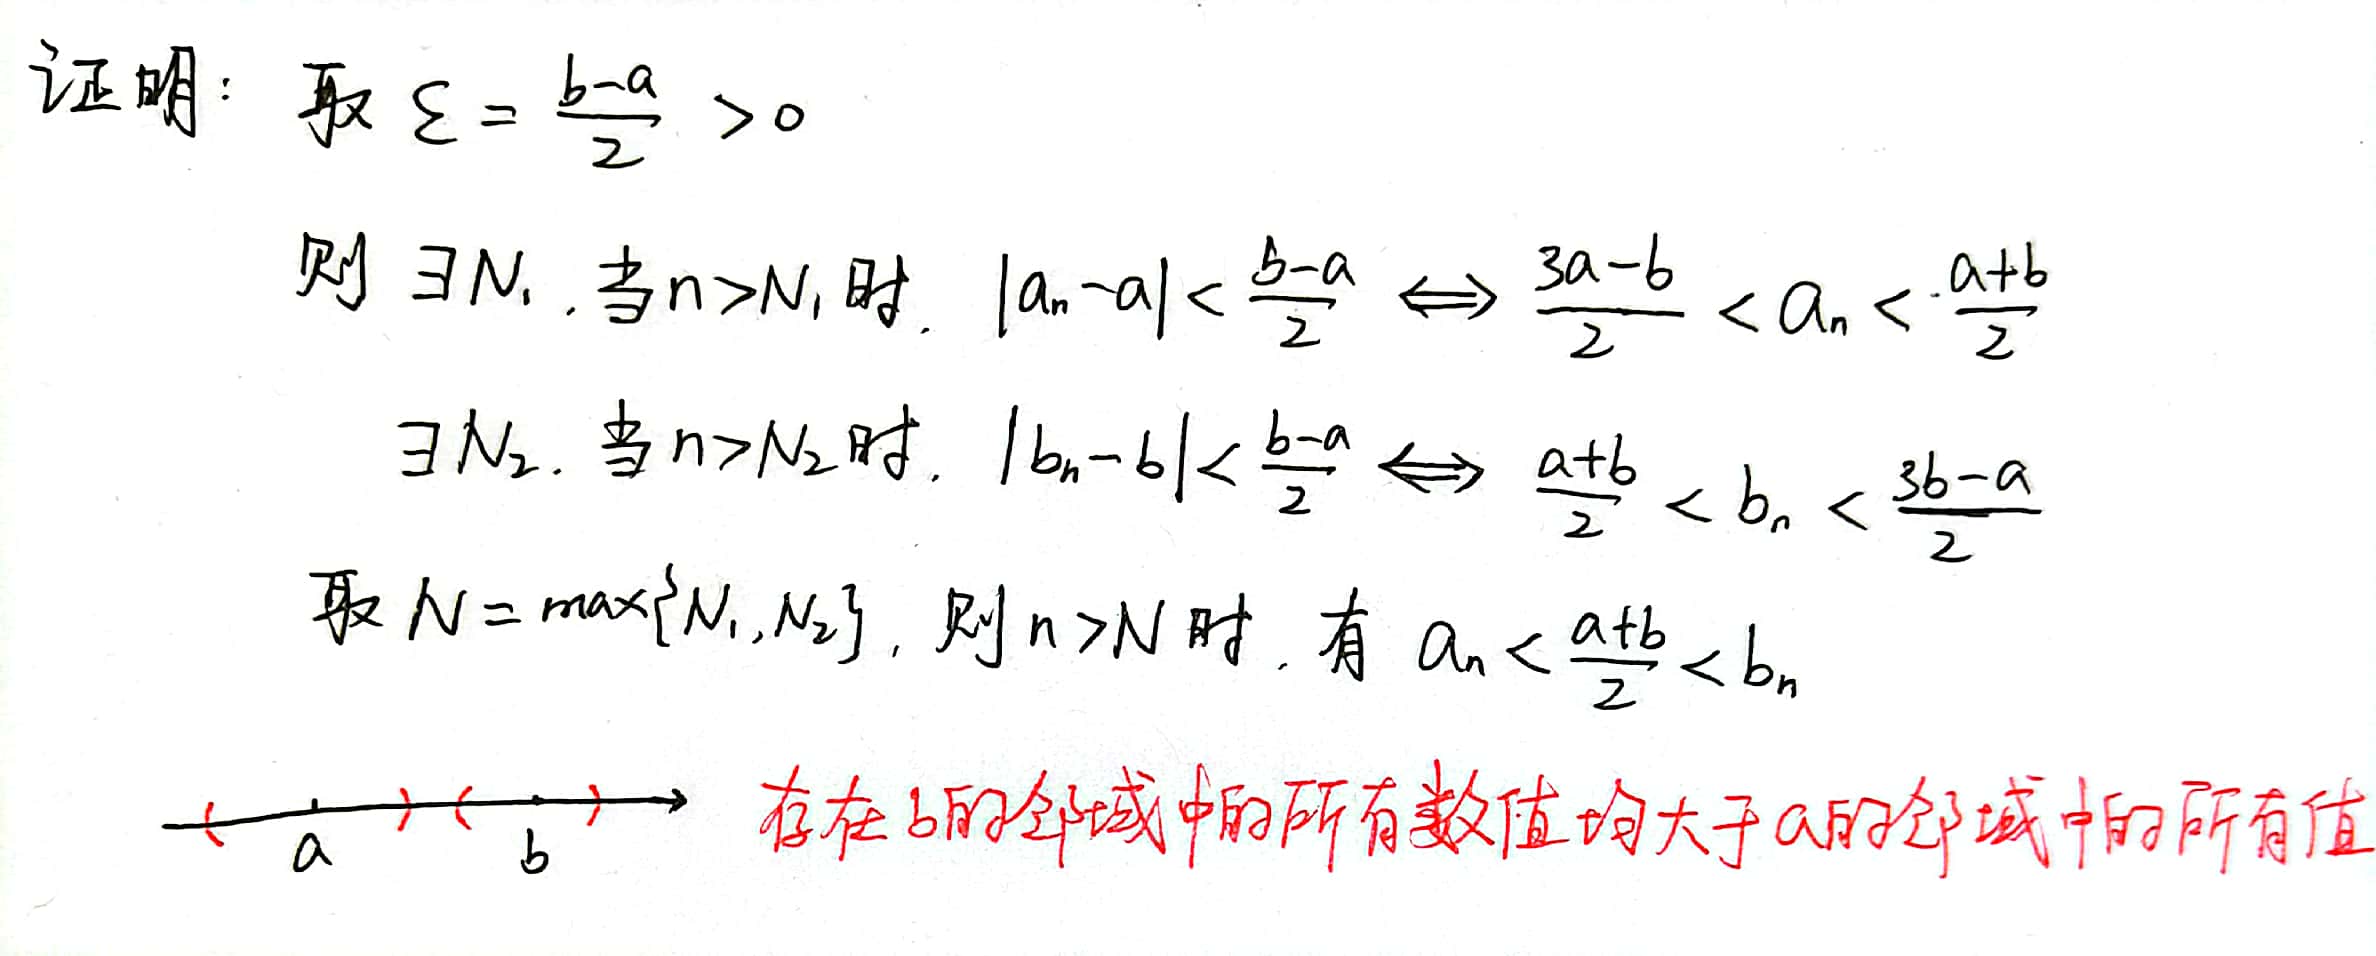 证明: 取 ε = \frac{b-a}{2} > 0
则 ∃N₁. 当n>N₁时. |aₙ-a| < \frac{b-a}{2} ⟺ \frac{3a-b}{2} < aₙ < \frac{a+b}{2}
∃N₂. 当n>N₂时. |bₙ-b| < \frac{b-a}{2} ⟺ \frac{a+b}{2} < bₙ < \frac{3b-a}{2}
取 N = max{N₁,N₂}, 则n>N时. 有 aₙ < \frac{a+b}{2} < bₙ
( a ) ( b ) 存在b的邻域中的所有数值均大于a的邻域中的所有值